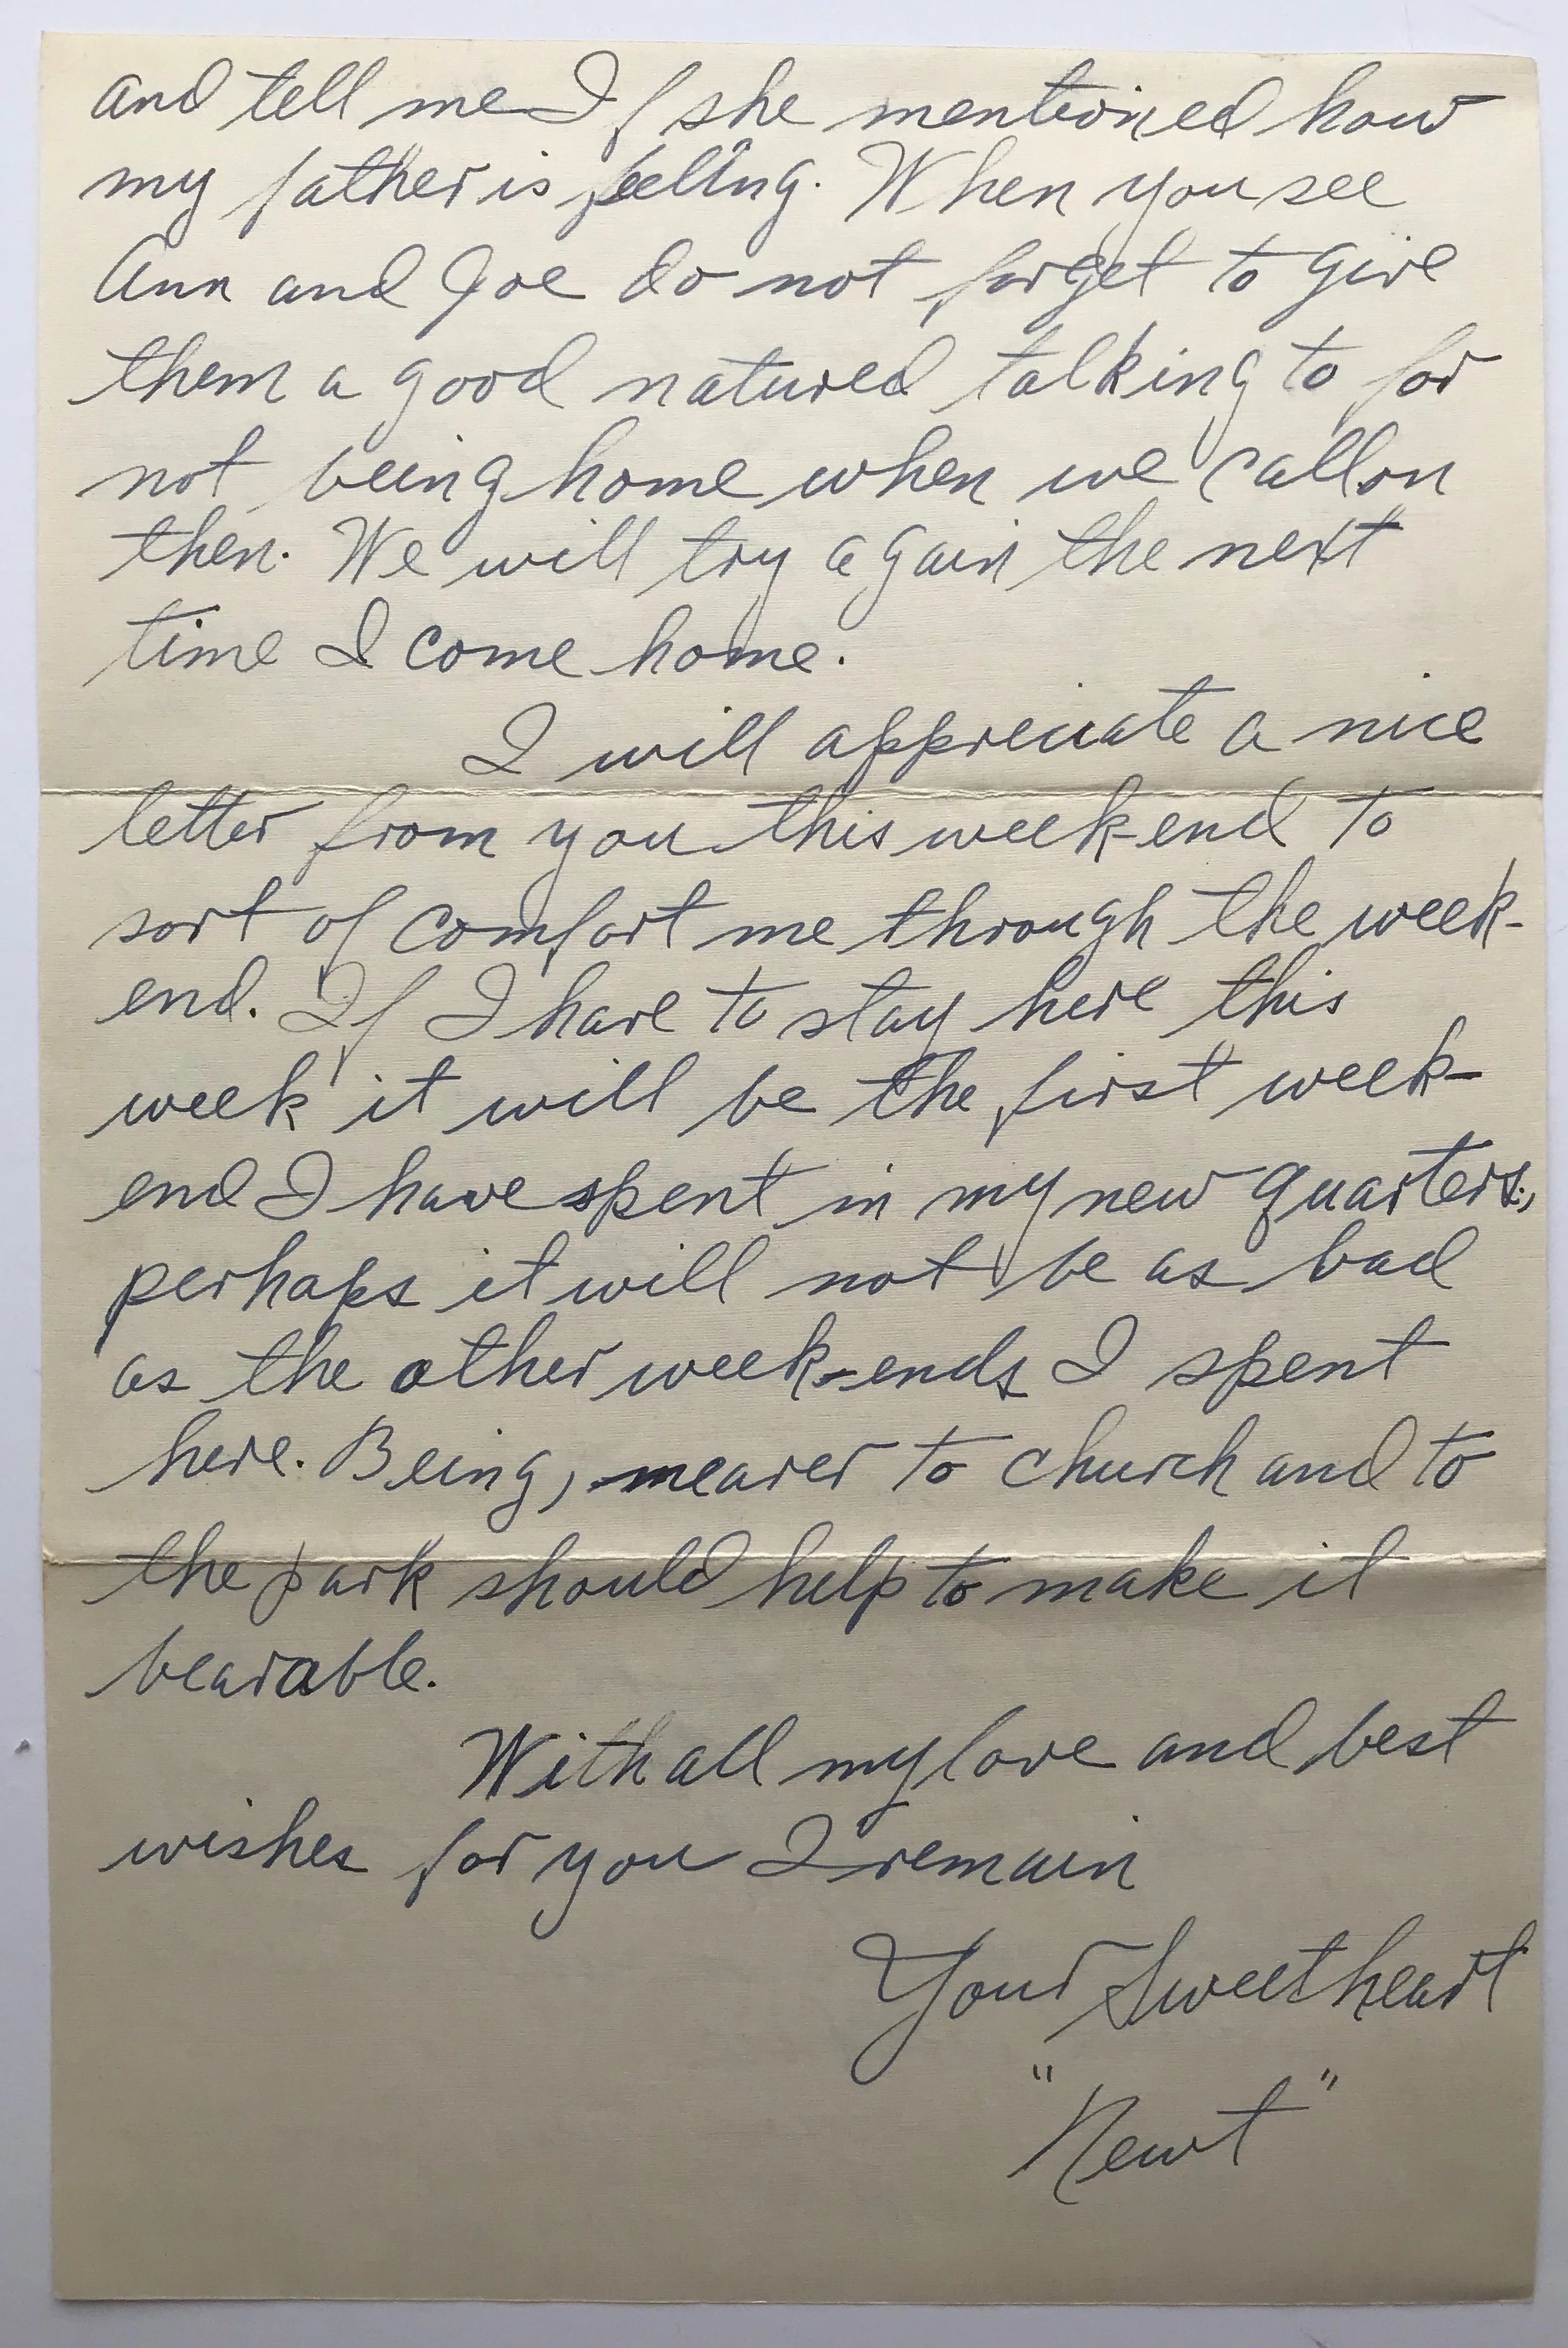 and tell me If she mentioned how
my father is feeling. When you see
Ann and Joe do not forget to give
them a good natured talking to for
not being home when we call on
then. We will try again the next
time I come home.
I will appreciate a nice
letter from you this week-end to
sort of comfort me through the week-
end. If I have to stay here this
week it will be the first week-
end I have spent in my new quarters,
perhaps it will not be as bad
as the other week-ends I spent
here. Being, nearer to church and to
the park should help to make it
bearable.
With all my love and best
wishes for you I remain
Your Sweetheart
"Newt"